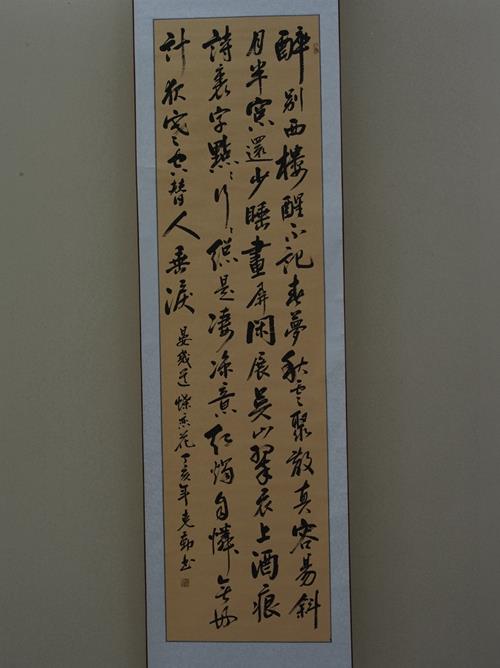 醉别西樓醒不記春夢秋雲聚散真容易斜
月半窗還少睡畫屏閑展吴山翠衣上酒痕
詩裏字點點行行總是凄凉意紅燭自憐無好
計夜寒空替人垂淚 晏幾道蝶戀花 丁亥年克書